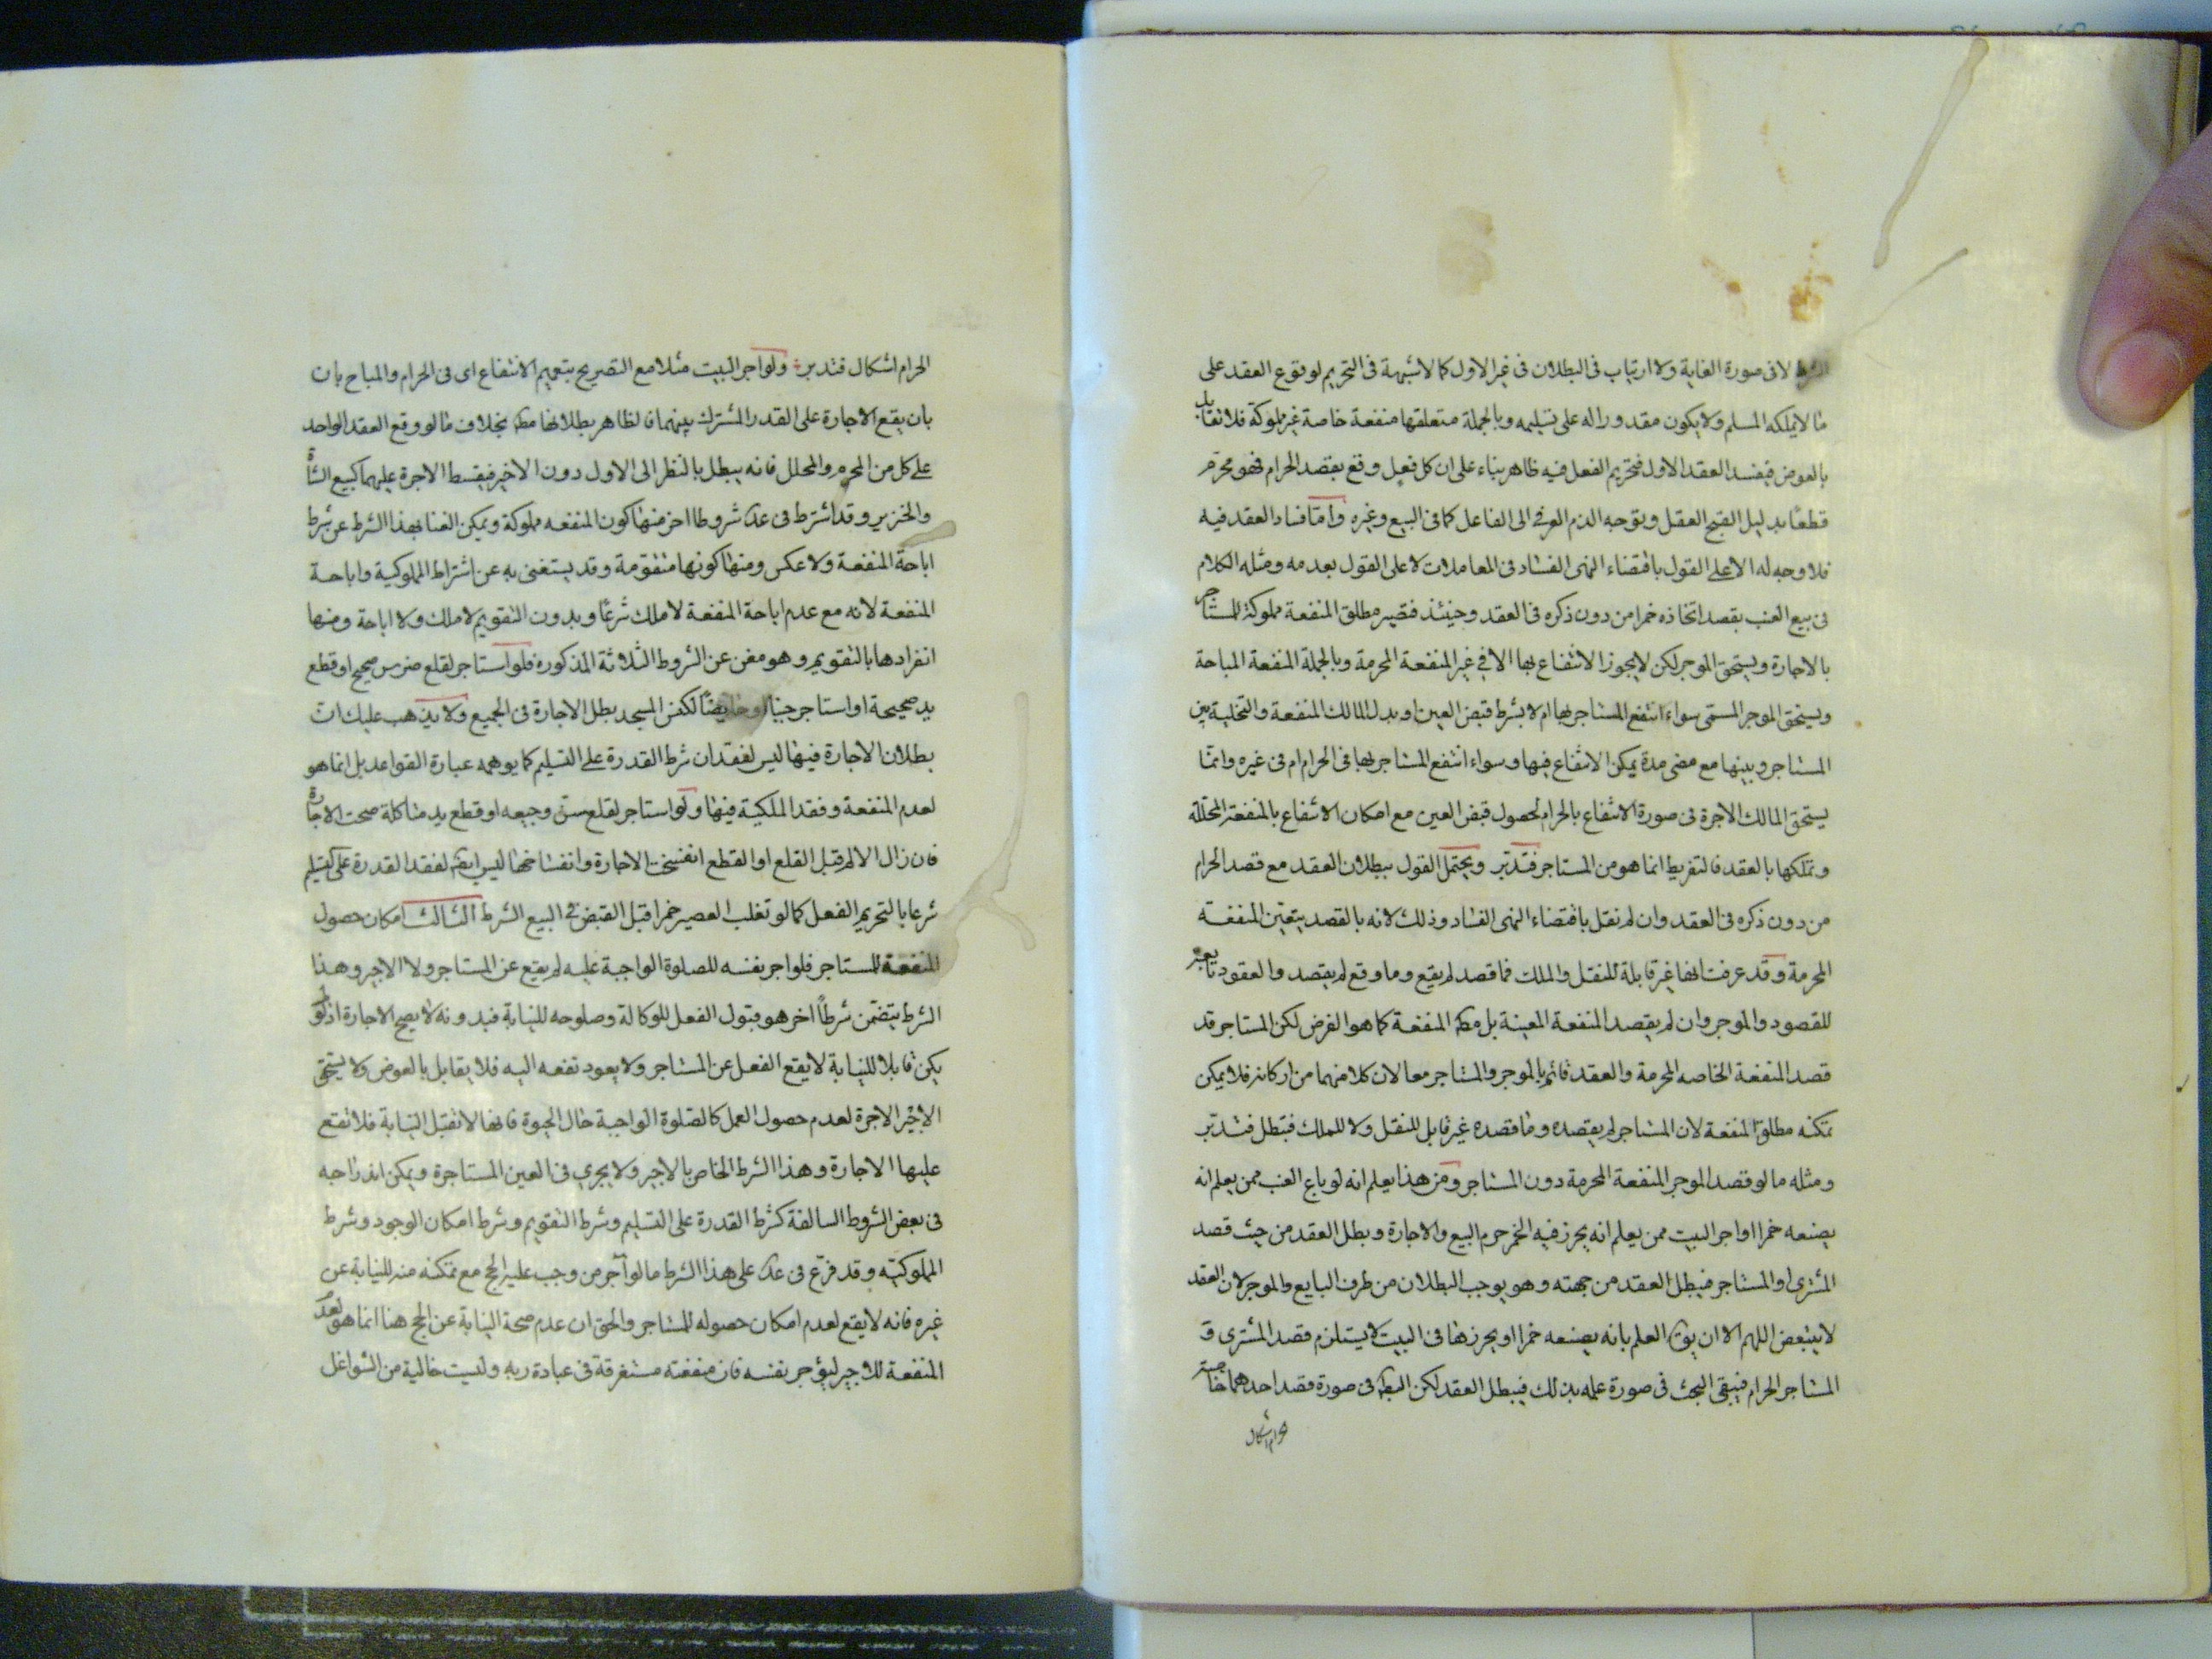 الشرط لا فى صورة الغاية ولا ارتياب فى البطلان فى غير الاول كما لا شبهة فى التحريم لوقوع العقد على
ما لا يملكه المسلم ولا يكون مقدورا له على تسليمه وبالجملة متعلقها منفعة خاصة غير مملوكة فلا تقابل
بالعوض فيفسد العقد الاول فتحريم الفعل فيه ظاهر بناء على ان كل فعل وقع بقصد الحرام فهو محرم
قطعًا بدليل القبح العقل وتوجه الذم العرفى الى الفاعل كما فى البيع وغيره وامّا فساد العقد فيه
فلا وجه له الا على القول باقتضاء النهى الفساد فى المعاملات لا على القول بعدمه ومثله الكلام
فى بيع العنب بقصد اتخاذه خمرا من دون ذكره فى العقد وحينئذ فتصير مطلق المنفعة مملوكة للمستاجر
بالاجارة ويستحق الموجر لكن لا يجوز الانتفاع بها الا فى غير المنفعة المحرمة وبالجملة المنفعة المباحة
ويستحق الموجر المسمى سواء انتفع المستاجر بها ام لا بشرط قبض العين او بدل المالك المنفعة والتخلية بين
المستاجر وبينها مع مضى مدة يمكن الانتفاع فيها وسواء انتفع المستاجر بها فى الحرام ام فى غيره وانما
يستحق المالك الاجرة فى صورة الانتفاع بالحرام لحصول قبض العين مع امكان الانتفاع بالمنفعة المحللة
وتملكها بالعقد فالتفريط انما هو من المستاجر فتدبّر ويحتمل القول ببطلان العقد مع قصد الحرام
من دون ذكره فى العقد وان لم نقل باقتضاء النهى الفساد وذلك لانه بالقصد يتعيّن المنفعة
المحرمة وقد عرفت انها غير قابلة للنقل والملك فما قصد لم يقع وما وقع لم يقصد والعقود تابعة
للقصود والموجر وان لم يقصد المنفعة المعينة بل مط المنفعة كما هو الفرض لكن المستاجر قد
قصد المنفعة الخاصه المحرمة والعقد قائم بالموجر والمستاجر معا لان كلا منهما من اركانه فلا يمكن
تمكنه مطلق المنفعة لان المستاجر لم يقصده وما قصده غير قابل للنقل ولا للملك فتبطل فتدبّر
ومثله ما لو قصد الموجر المنفعة المحرمة دون المستاجر ومن هذا يعلم انه لو باع العنب ممن يعلم انه
يصنعه خمرا او اجر البيت ممن يعلم انه يحرز فيه الخمر حرم البيع والاجارة وبطل العقد من حيث قصد
المشترى او المستاجر فيبطل العقد من جهته وهو يوجب البطلان من طرف البايع والموجر لان العقد
لا يتبعض اللهم الا ان يق العلم بانه يصنعه خمرا او يحرزها فى البيت لا يستلزم قصد المشترى و
المستاجر الحرام فيبقى البحث فى صورة علمه بذلك فيبطل العقد لكن البط فى صورة قصد احدهما خاصة
الحرام اشكال
الحرام اشكال فتدبر ولو اجر البيت مثلا مع التصريح بتعميم الانتفاع اى فى الحرام والمباح بان
بان يقع الاجارة على القدر المشترك بينهما فالظاهر بطلانها مط بخلاف ما لو وقع العقد الواحد
على كل من المحرم والمحلل فانه يبطل بالنظر الى الاول دون الاخير فيقسط الاجرة عليهما كبيع الشاة
والخنزير وقد اشترط فى عد شروطا اخر منها كون المنفعه مملوكة ويمكن الغنا بهذا الشرط عن شرط
اباحة المنفعة ولا عكس ومنها كونها متقومة وقد يستغنى به عن اشتراط المملوكية واباحة
المنفعة لانه مع عدم اباحة المنفعة لا ملك شرعًا وبدون التقويم لا ملك ولا اباحة ومنها
انفرادها بالتقويم وهو مغن عن الشروط الثلاثة المذكورة فلو استاجر لقلع ضرس صحيح او قطع
يد صحيحة او استاجر جنبا او حايضًا لكنس المسجد بطل الاجارة فى الجميع ولا يذهب عليك ان
بطلان الاجارة فيها ليس لفقدان شرط القدرة على التسليم كما يوهمه عبارة القواعد بل انما هو
لعدم المنفعة وفقد الملكية فيها ولو استاجر لقلع سن وجيعه او قطع يد متاكلة صحت الاجارة
فان زال الالم قبل القلع او القطع انفسخت الاجارة وانفساخها ليس ايض لفقد القدرة على التسليم
شرعا بالتحريم الفعل كما لو تغلب العصير خمرا قبل القبض فى البيع الشرط الثالث امكان حصول
المنفعة للمستاجر فلو اجر نفسه للصلوة الواجبة عليه لم يقع عن المستاجر ولا الاجير وهذا
الشرط يتضمن شرطاً اخر هو قبول الفعل للوكالة وصلوحه للنيابة فبدونه لا يصح الاجارة اذ لو لم
يكن قابلا للنيابة لا يقع الفعل عن المستاجر ولا يعود نفعه اليه فلا يقابل بالعوض ولا يستحق
الاجير الاجرة لعدم حصول العمل كالصلوة الواجبة حال الحيوة فانها لا تقبل النيابة فلا تقع
عليها الاجارة وهذا الشرط الخاص بالاجير ولا يجرى فى العين المستاجرة ويمكن اندراجه
فى بعض الشروط السالفة كشرط القدرة على التسليم وشرط التقويم وشرط امكان الوجود وشرط
المملوكيّه وقد فرّع فى عد على هذا الشرط ما لو آجر من وجب عليه الحج مع تمكنه منه للنيابة عن
غيره فانه لا يقع لعدم امكان حصوله للمستاجر والحق ان عدم صحة النيابة عن الحج هنا انما هو لعدم
المنفعة للاجير ليؤجر نفسه فان منفعته مستغرقة فى عبادة ربه وليست خالية من الشواغل